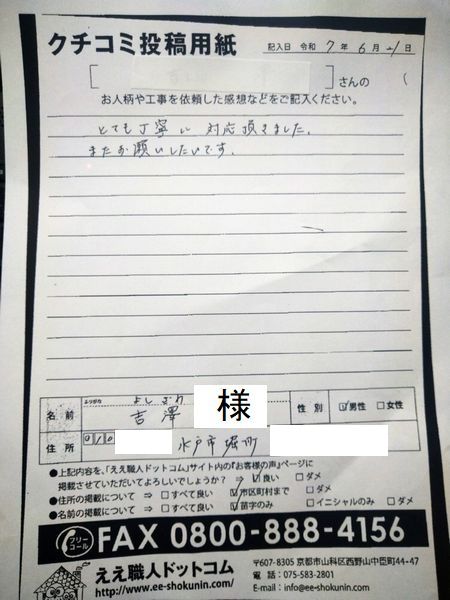 クチコミ投稿用紙 記入日 令和 7年 6月 21日
[ ]さんの
お人柄や工事を依頼した感想などをご記入ください。
とても丁寧に対応頂きました。
またお願いしたいです。
ふりがな よしざわ
名前 吉澤 様 性別 ☑男性 □女性
住所 310 水戸市堀町
●上記内容を、「ええ職人ドットコム」サイト内の『お客様の声』ページに
掲載させていただいてよろしいでしょうか? ⇒ ☑良い □ダメ
●住所の掲載について ⇒ □すべて良い ☑市区町村まで □ダメ
●名前の掲載について ⇒ □すべて良い ☑苗字のみ □イニシャルのみ □ダメ
フリーコール FAX 0800-888-4156
ええ職人ドットコム
http://www.ee-shokunin.com/
〒607-8305 京都市山科区西野山中臣町44-47
電話:075-583-2801
E-mail:info@ee-shokunin.com